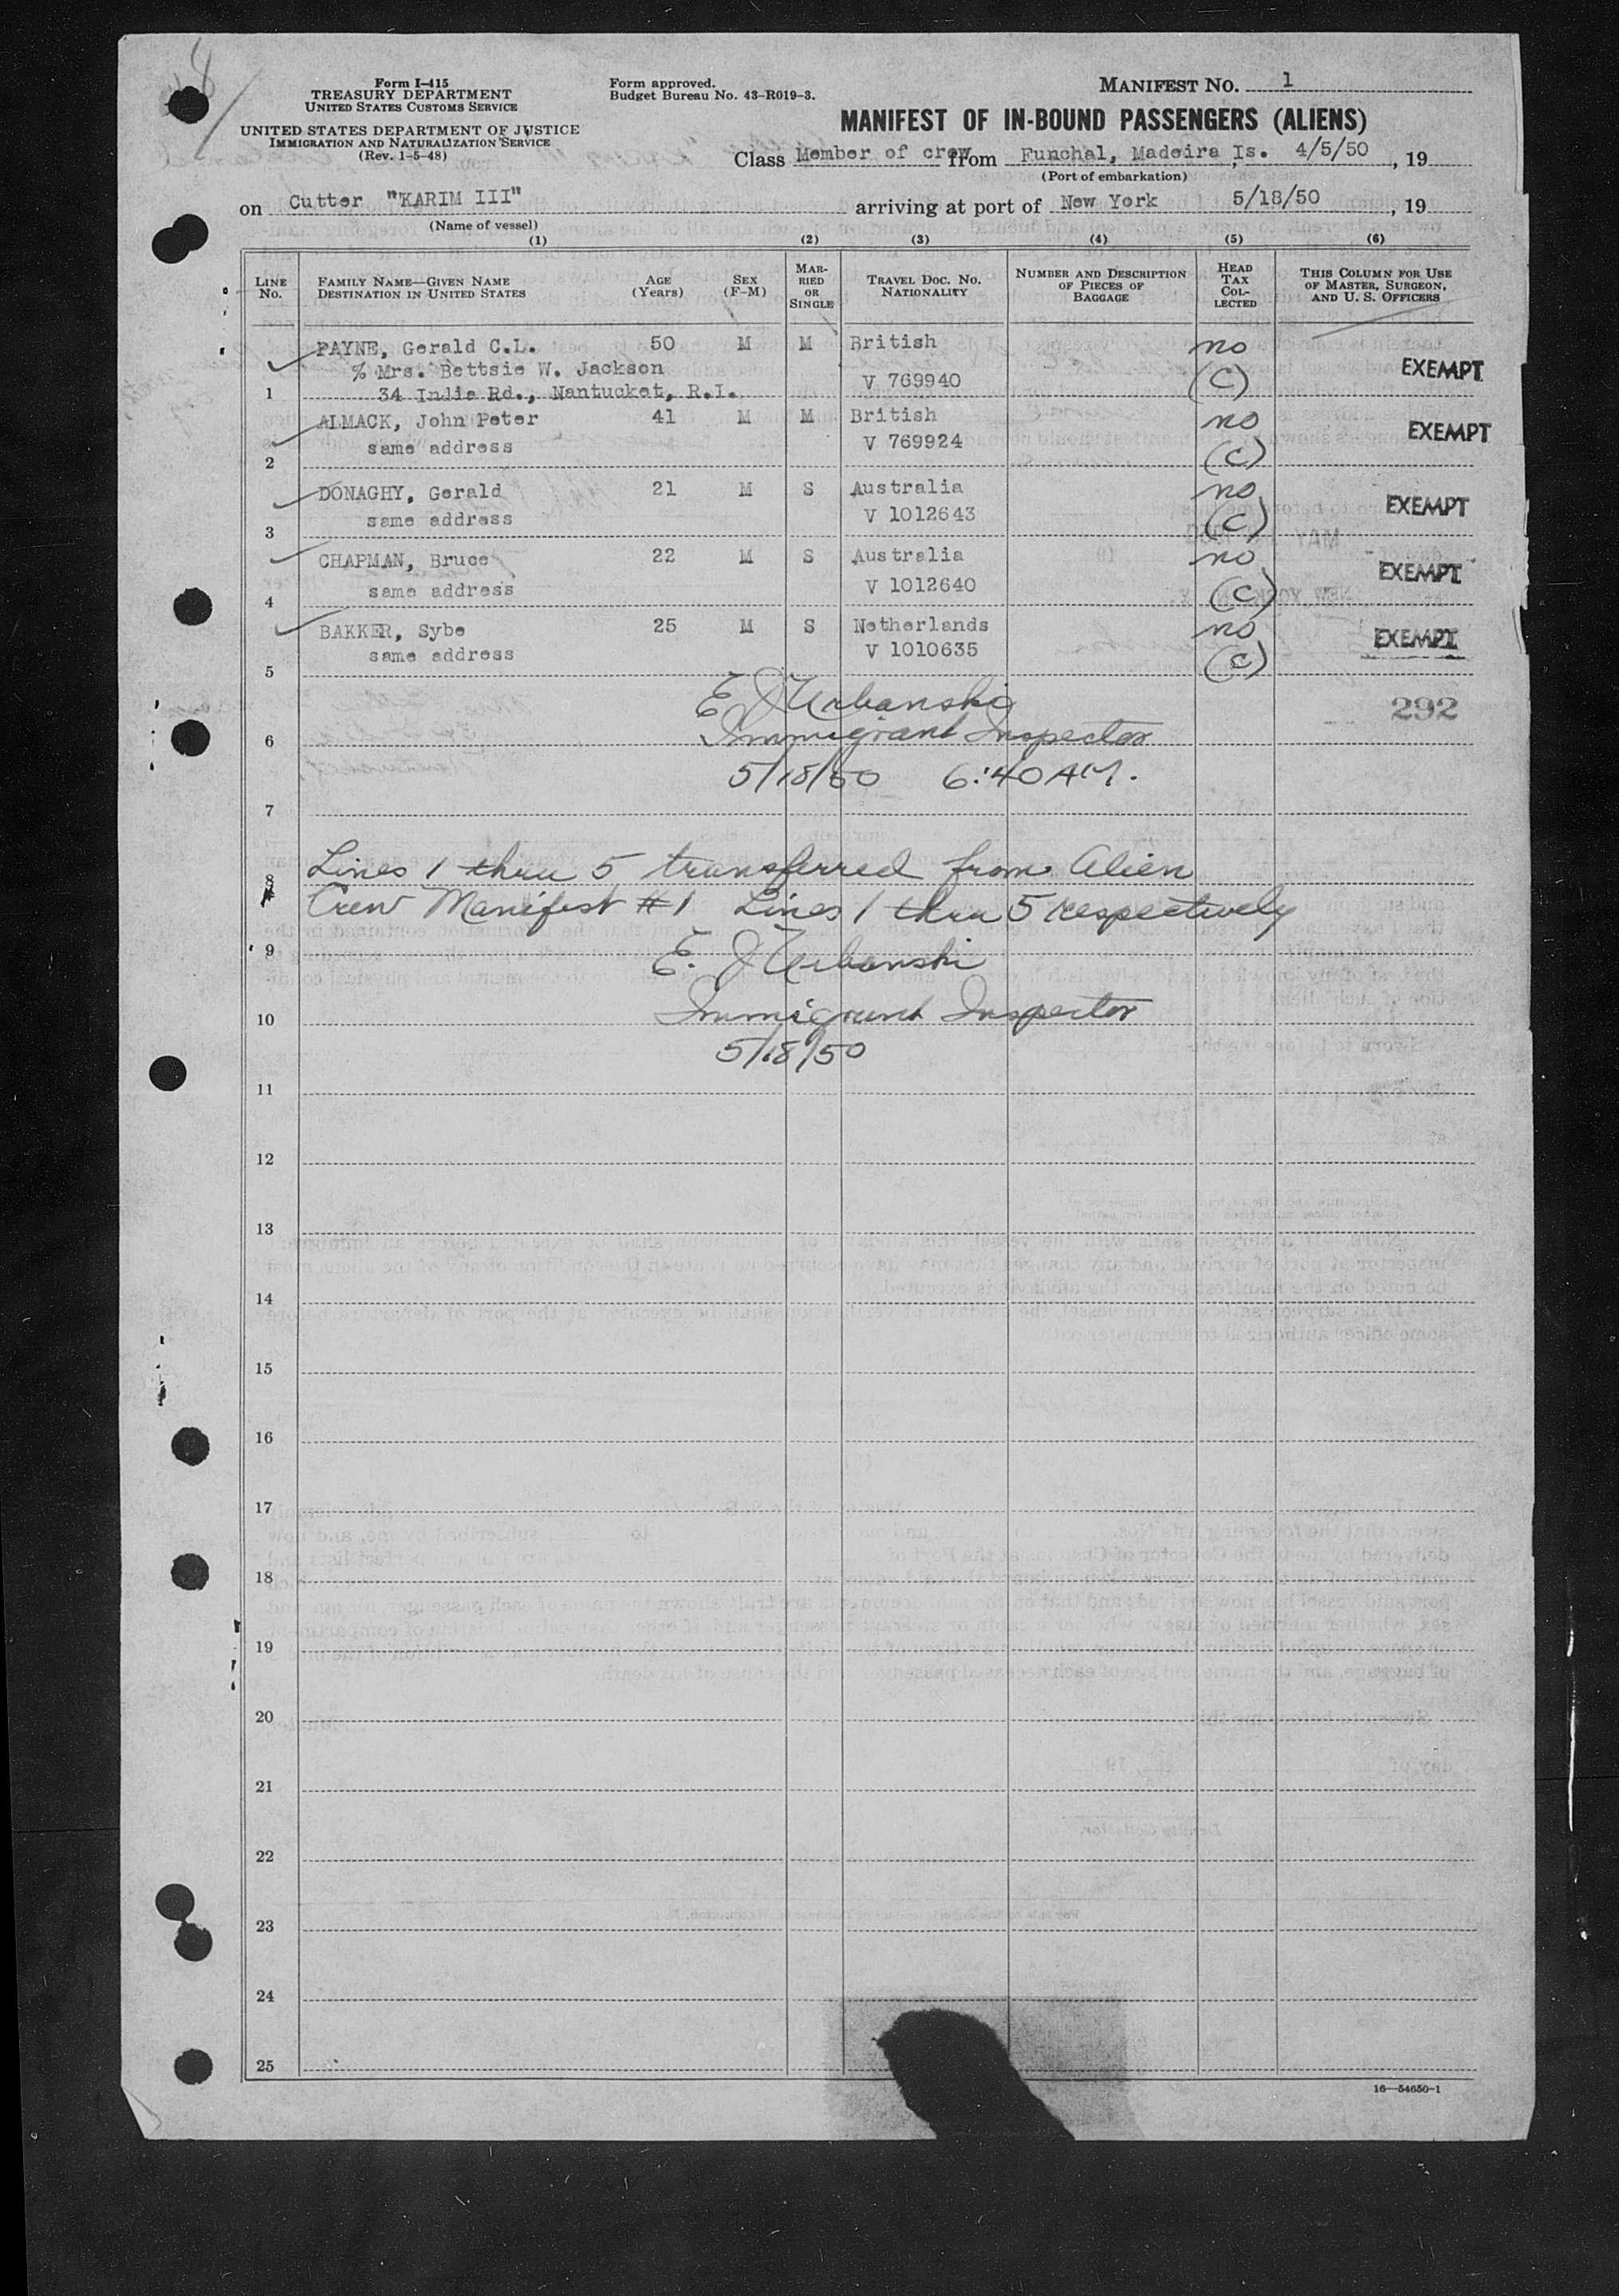 Form I-415
TREASURY DEPARTMENT
UNITED STATES CUSTOMS SERVICE
UNITED STATES DEPARTMENT OF JUSTICE
IMMIGRATION AND NATURALIZATION SERVICE
(Rev. 1-5-48)
Form approved.
Budget Bureau No. 43-R019-3.
MANIFEST NO. 1
MANIFEST OF IN-BOUND PASSENGERS (ALIENS)
Class Member of crew from Funchal, Madeira Is. 4/5/50, 19
(Port of embarkation)
on Cutter "KARIM III" arriving at port of New York 5/18/50, 19
(Name of vessel)
(1) (2) (3) (4) (5) (6)
LINE No. FAMILY NAME—GIVEN NAME DESTINATION IN UNITED STATES AGE (Years) SEX (F-M) MARRIED OR SINGLE TRAVEL DOC. NO. NATIONALITY NUMBER AND DESCRIPTION OF PIECES OF BAGGAGE HEAD TAX COLLECTED THIS COLUMN FOR USE OF MASTER, SURGEON, AND U. S. OFFICERS
PAYNE, Gerald C.L. 50 M M British no
% Mrs. Bettsie W. Jackson V 769940 (C) EXEMPT
1 34 Indie Rd., Nantucket, R.I.
ALMACK, John Peter 41 M M British no EXEMPT
same address V 769924 (C)
2
DONAGHY, Gerald 21 M S Australia no EXEMPT
same address V 1012643 (C)
3
CHAPMAN, Bruce 22 M S Australia no EXEMPT
same address V 1012640 (C)
4
BAKKER, Sybe 25 M S Netherlands no EXEMPT
same address V 1010635 (C)
5
E J Urbanski 292
6 Immigrant Inspector
5/18/50 6:40 AM.
7
Lines 1 thru 5 transferred from Alien
8
Crew Manifest #1 Lines 1 thru 5 respectively
9 E. J Urbanski
10 Immigrant Inspector
5/18/50
11
12
13
14
15
16
17
18
19
20
21
22
23
24
25
16—54650-1